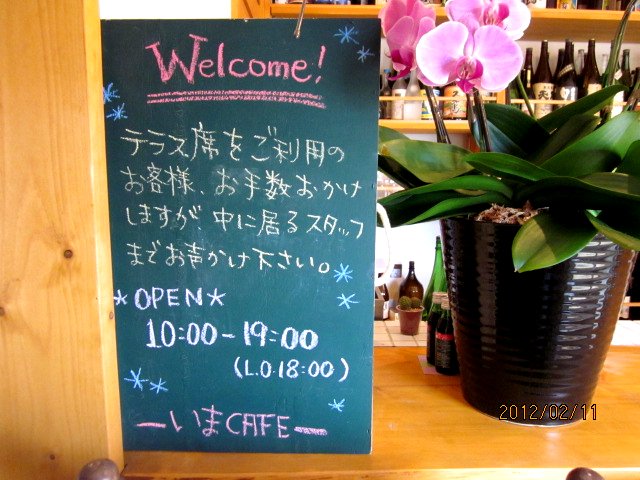 Welcome!
テラス席をご利用の
お客様、お手数おかけ
しますが 中に居るスタッフ
までお声かけ下さい。
*OPEN*
10:00-19:00
(L.O.18:00)
—いまCAFE—
2012/02/11